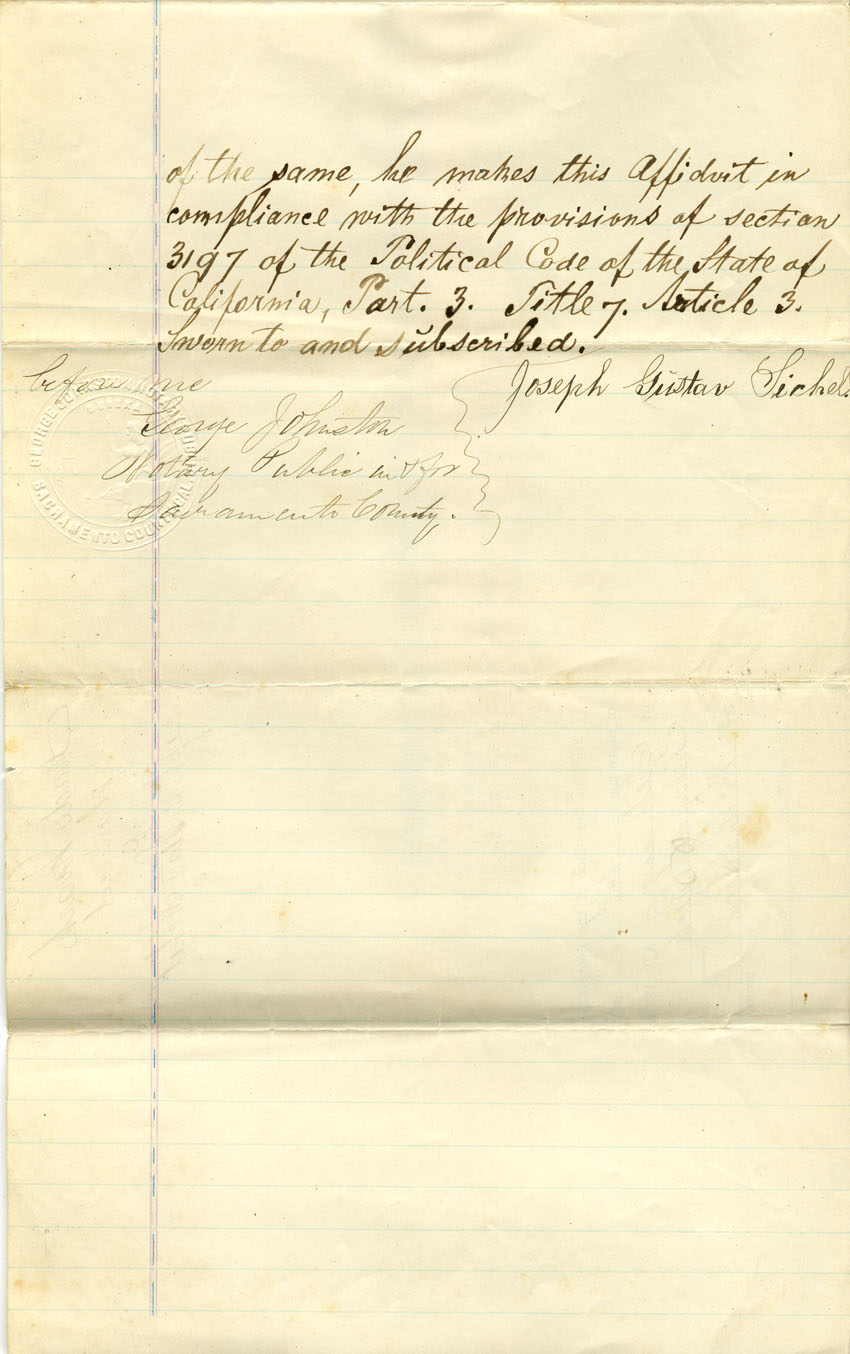 of the same, he makes this Affidvit in
compliance with the provisions of section
3197 of the Political Code of the State of
California, Part. 3. Title 7. Article 3.
Sworn to and subscribed.
before me
Joseph Gustav Sichel.
George Johnston
Notary Public in & for
Sacramento County.
SACRAMENTO COUNTY